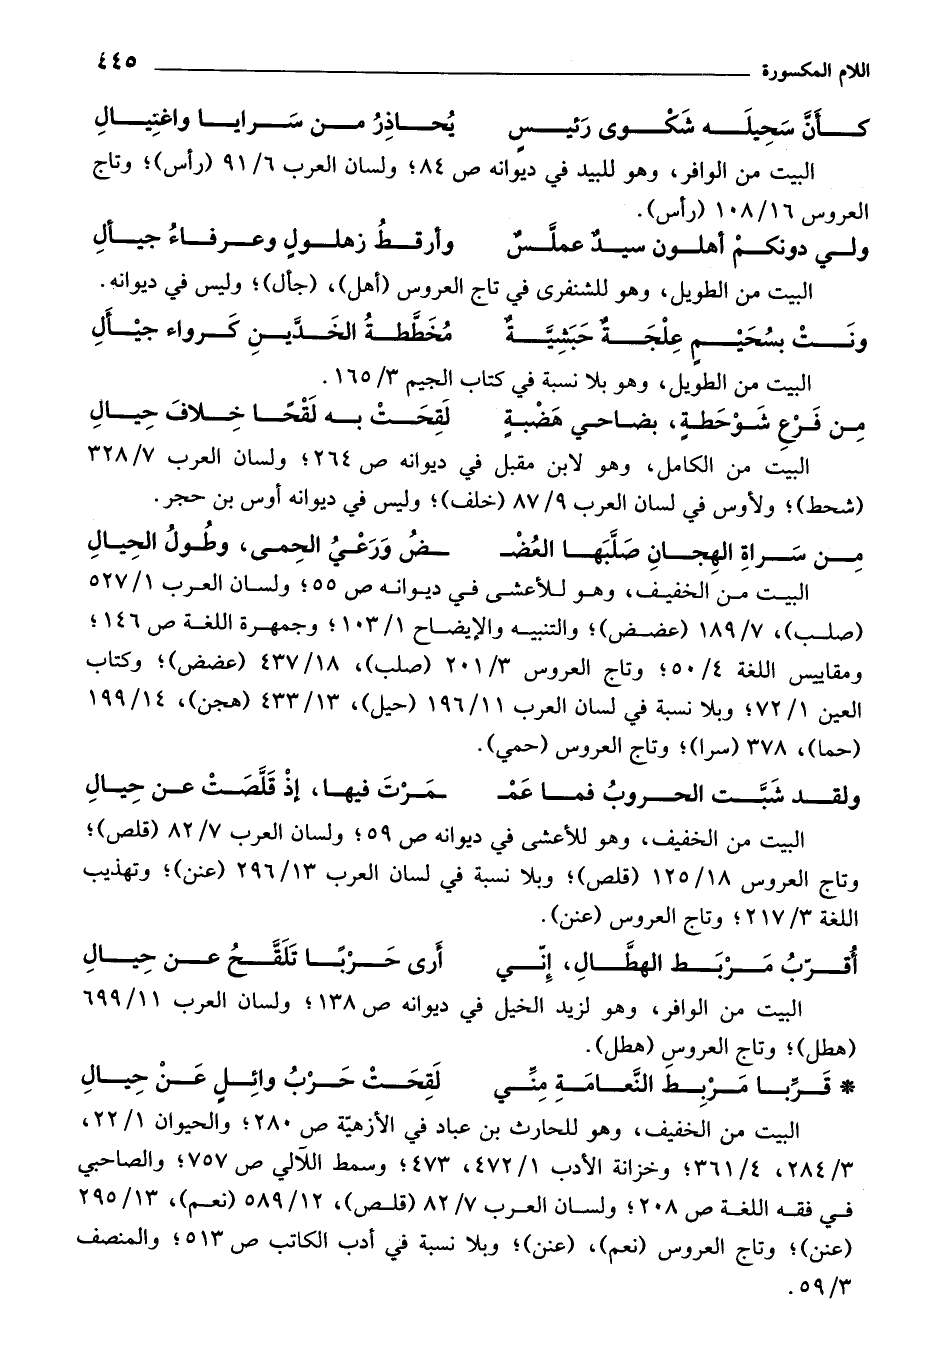 اللام المكسورة ٤٤٥
كــأَنَّ سَحِيلَــه شَكْــوى رَئيــسٍ يُحــاذِرُ مــن سَــرايــا واغتِيــالِ
البيت من الوافر، وهو للبيد في ديوانه ص ٨٤؛ ولسان العرب ٩١/٦ (رأس)؛ وتاج
العروس ١٠٨/١٦ (رأس).
ولــي دونكــمْ أهلــون سيــدٌ عملَّــسٌ وأرقــطُ زهلــولٍ وعــرفــاءُ جيــألِ
البيت من الطويل، وهو للشنفرى في تاج العروس (أهل)، (جأل)؛ وليس في ديوانه.
ونَــتْ بسُحَيْــمٍ عِلْجَــةٌ حَبَشيَّــةٌ مُخَطَّطــةُ الخَــدَّيــنِ كَــرواء جيْــألِ
البيت من الطويل، وهو بلا نسبة في كتاب الجيم ١٦٥/٣.
مِــن فَــرْعِ شَــوْحَطــةٍ، بضــاحــي هَضْبــةٍ لَقِحَــتْ بــه لَقْحًــا خِــلافَ حِيــالِ
البيت من الكامل، وهو لابن مقبل في ديوانه ص ٢٦٤؛ ولسان العرب ٣٢٨/٧
(شحط)؛ ولأوس في لسان العرب ٨٧/٩ (خلف)؛ وليس في ديوانه أوس بن حجر.
مِــن سَــراةِ الهِجــانِ صَلَّبَهــا العُضْــ ــضُ وَرَعْــيُ الحِمــى، وطُــولُ الحِيــالِ
البيت من الخفيف، وهو للأعشى في ديوانه ص ٥٥؛ ولسان العرب ٥٢٧/١
(صلب)، ١٨٩/٧ (عضض)؛ والتنبيه والإيضاح ١٠٣/١؛ وجمهرة اللغة ص ١٤٦؛
ومقاييس اللغة ٥٠/٤؛ وتاج العروس ٢٠١/٣ (صلب)، ٤٣٧/١٨ (عضض)؛ وكتاب
العين ٧٢/١؛ وبلا نسبة في لسان العرب ١٩٦/١١ (حيل)، ٤٣٣/١٣ (هجن)، ١٩٩/١٤
(حما)، ٣٧٨ (سرا)؛ وتاج العروس (حمي).
ولقــد شَبَّــت الحــروبُ فمــا غَمْــ ــمَــرْتَ فيهــا، إذْ قَلَّصَــتْ عــن حِيــالِ
البيت من الخفيف، وهو للأعشى في ديوانه ص ٥٩؛ ولسان العرب ٨٢/٧ (قلص)؛
وتاج العروس ١٢٥/١٨ (قلص)؛ وبلا نسبة في لسان العرب ٢٩٦/١٣ (عنن)؛ وتهذيب
اللغة ٢١٧/٣؛ وتاج العروس (عنن).
أُقــرّبُ مَــرْبَــط الهطَّــالِ، إنّــي أرى حَــرْبًــا تَلَقَّــحُ عــن حِيــالِ
البيت من الوافر، وهو لزيد الخيل في ديوانه ص ١٣٨؛ ولسان العرب ٦٩٩/١١
(هطل)؛ وتاج العروس (هطل).
* قَــرِّبــا مَــرْبِــطَ النَّعــامَــةِ مِنِّــي لَقِحَــتْ حَــرْبُ وائــلٍ عَــنْ حِيــالِ
البيت من الخفيف، وهو للحارث بن عباد في الأزهيّة ص ٢٨٠؛ والحيوان ٢٢/١،
٢٨٤/٣، ٣٦١/٤؛ وخزانة الأدب ٤٧٢/١، ٤٧٣؛ وسمط اللآلي ص ٧٥٧؛ والصاحبي
في فقه اللغة ص ٢٠٨؛ ولسان العرب ٨٢/٧ (قلص)، ٥٨٩/١٢ (نعم)، ٢٩٥/١٣
(عنن)؛ وتاج العروس (نعم)، (عنن)؛ وبلا نسبة في أدب الكاتب ص ٥١٣؛ والمنصف
٥٩/٣.